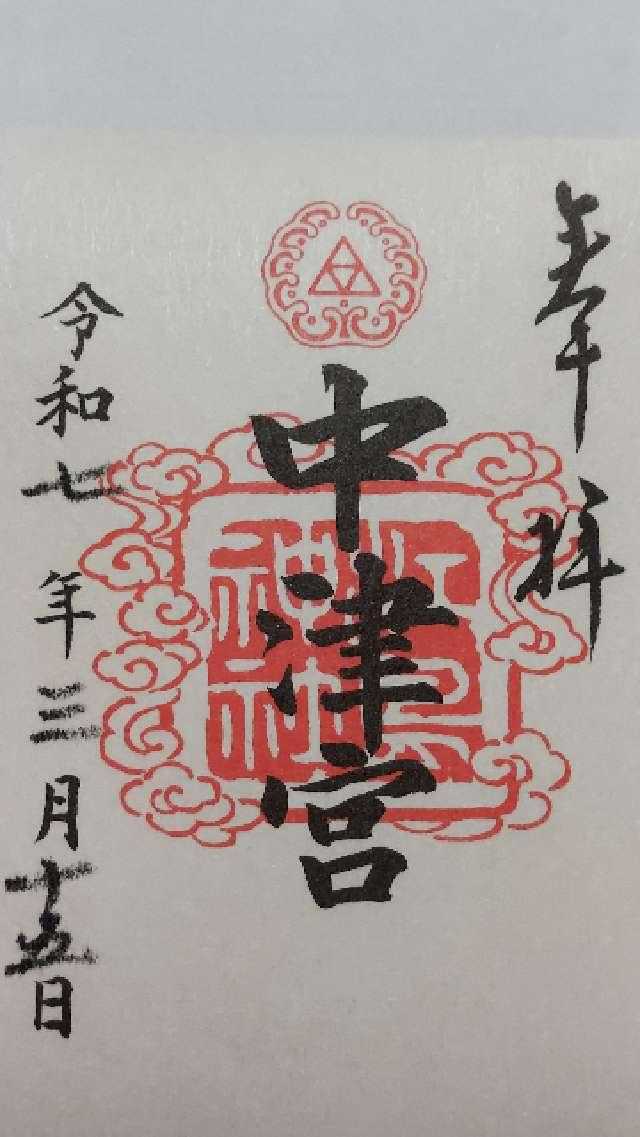 奉拝
中津宮
江島神社
令和七年三月十五日